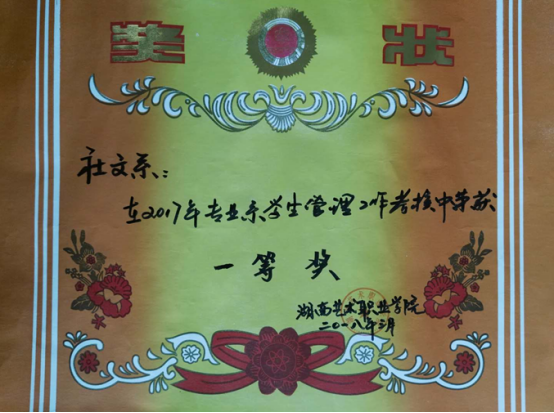 奖状
社文系:
在2017年专业系学生管理工作考核中荣获
一等奖
湖南艺术职业学院
二〇一八年三月